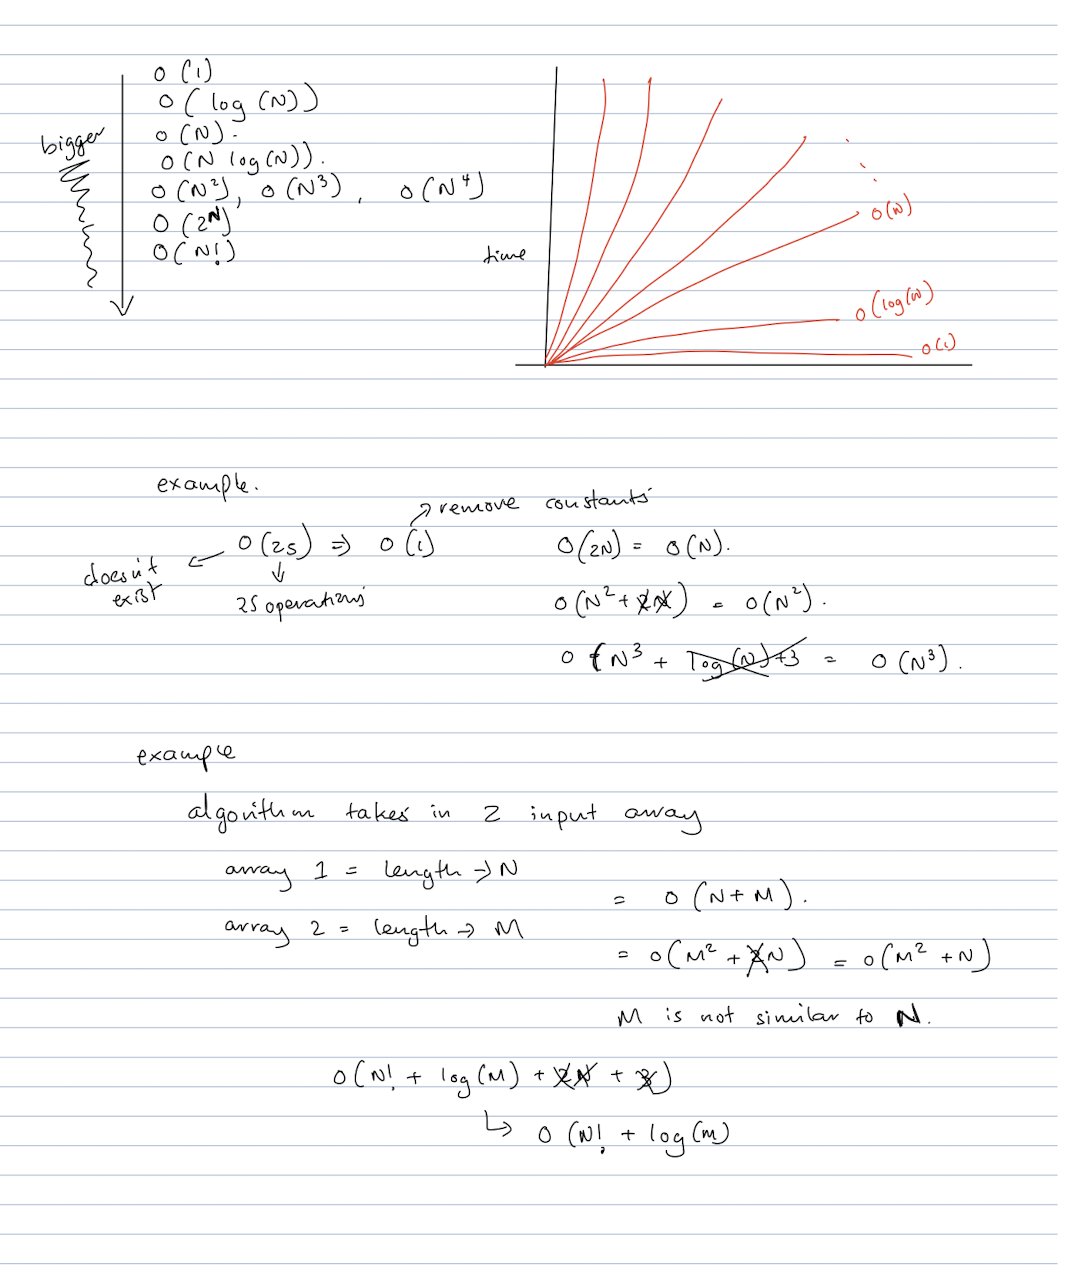 O(1)
O(log(N))
bigger
O(N).
O(N log(N)).
O(N²), O(N³), O(N⁴)
O(2ᴺ)
O(N!)
time
O(N)
O(log(N))
O(1)
example.
remove constants
O(25) ⇒ O(1)
doesn't
exist
25 operations
O(2N) = O(N).
O(N² + 2N) = O(N²).
O(N³ + log(N)+3 = O(N³).
example
algorithm takes in 2 input array
array 1 = length → N
array 2 = length → M
= O(N+M).
= O(M² + 2N) = O(M² + N)
M is not similar to N.
O(N! + log(M) + 2N + 3)
↳ O(N! + log(M)